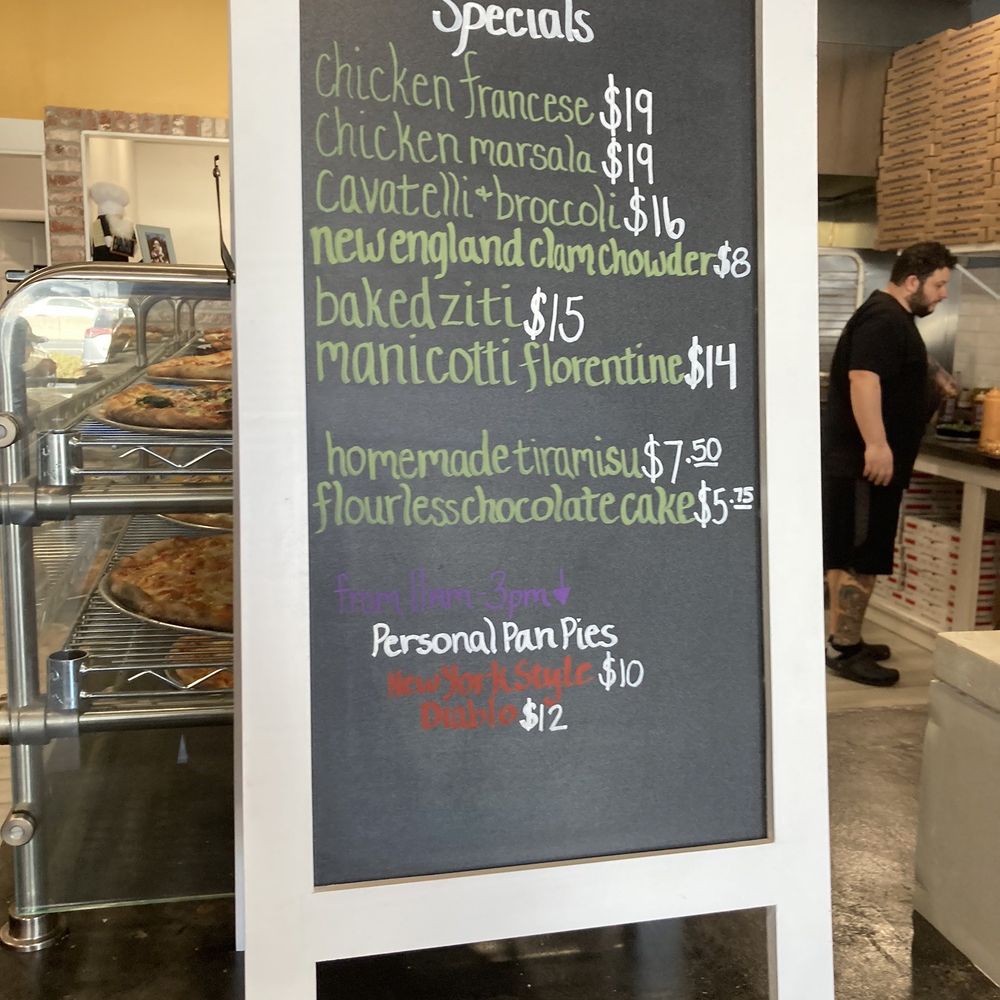 Specials
chicken francese $19
chicken marsala $19
cavatelli + broccoli $16
new england clam chowder $8
baked ziti $15
manicotti florentine $14
homemade tiramisu $7.50
flourless chocolate cake $5.75
from 11am-3pm ↓
Personal Pan Pies
New York Style $10
Diablo $12